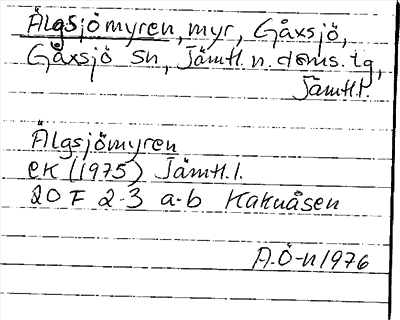 Älgsjömyren, myr, Gåxsjö,
Gåxsjö sn, Jämtl. n. doms. tg,
Jämtl.l.
Älgsjömyren
ek (1975) Jämtl.l.
20 F 2-3 a-b Kakuåsen
A.Ö-n 1976